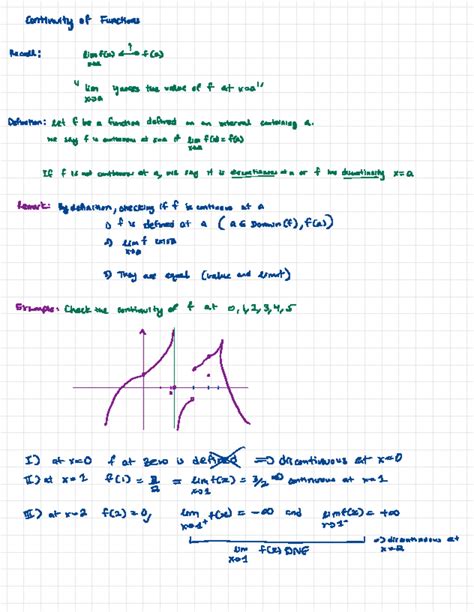 Continuity of Functions
Recall: lim f(x) ⟷? f(a)
x→a
"lim guesses the value of f at x=a"
x→a
Definition: Let f be a function defined on an interval containing a.
We say f is continuous at x=a if lim f(x) = f(a)
x→a
If f is not continuous at a, we say it is discontinuous at a or f has discontinuity x=a
Remark: By definition, checking if f is continuous at a
1) f is defined at a (a ∈ Domain(f), f(a))
2) lim f exists
x→a
3) They are equal (value and limit)
Example: Check the continuity of f at 0,1,2,3,4,5
I) at x=0 f at zero is defined ⟹ discontinuous at x=0
II) at x=1 f(1) = 3/2 = lim f(x) = 3/2 ⟹ continuous at x=1
x→1
III) at x=2 f(2)=0, lim f(x) = -∞ and lim f(x) = +∞
x→1⁺ x→1⁻
lim f(x) DNE ⟹ discontinuous at x=2
x→1